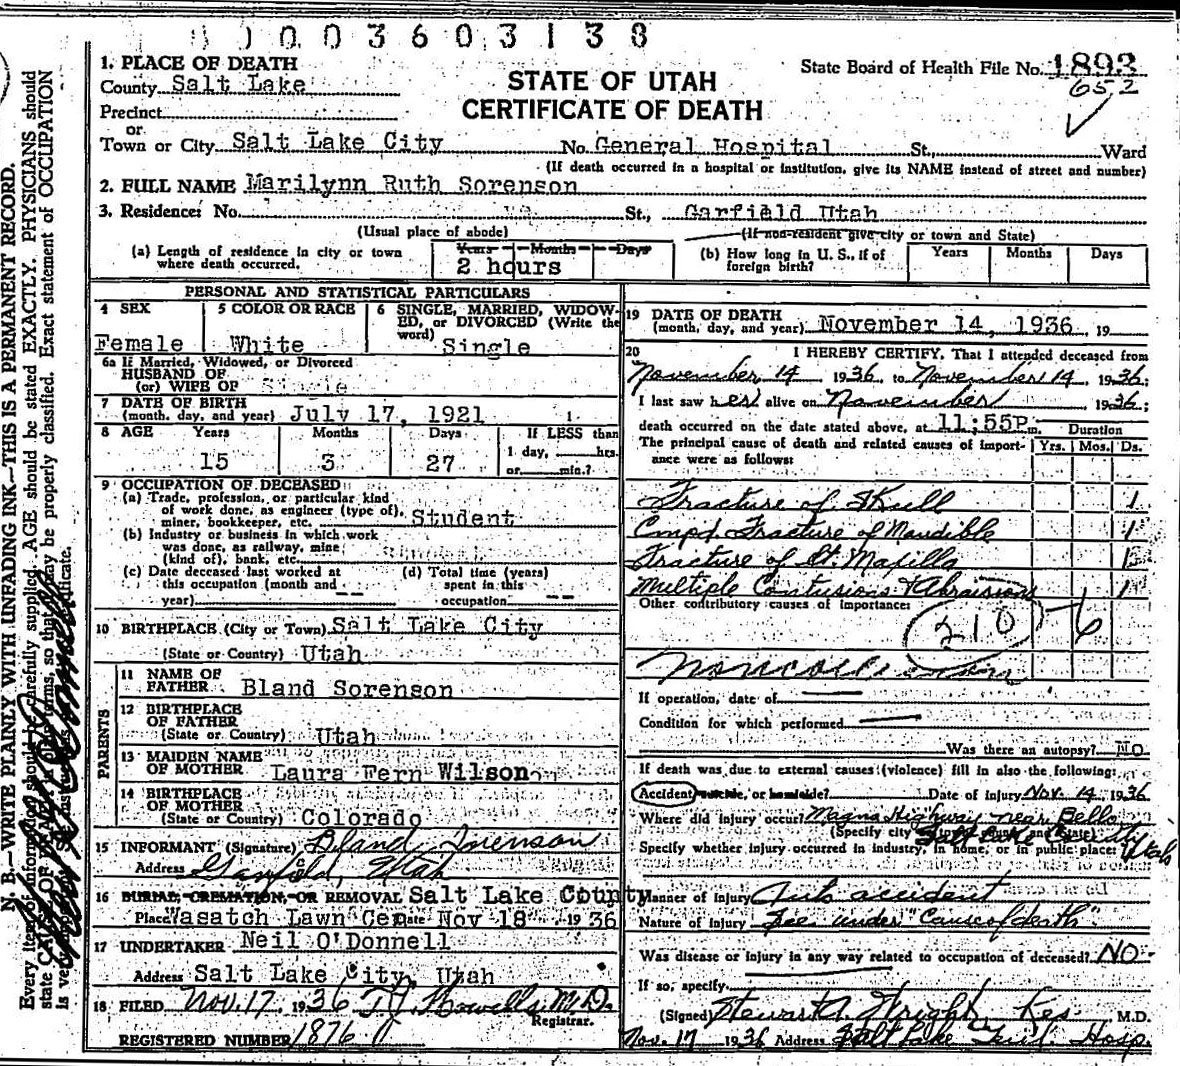 0003603138
1. PLACE OF DEATH
County Salt Lake
Precinct
or
Town or City Salt Lake City No. General Hospital St., Ward
(If death occurred in a hospital or institution, give its NAME instead of street and number)
STATE OF UTAH
CERTIFICATE OF DEATH
State Board of Health File No. 1893
652
2. FULL NAME Marilynn Ruth Sorenson
3. Residence: No. St., Garfield Utah
(Usual place of abode) (If non-resident give city or town and State)
(a) Length of residence in city or town where death occurred. Years Months Days
2 hours
(b) How long in U. S., if of foreign birth? Years Months Days
PERSONAL AND STATISTICAL PARTICULARS
4 SEX 5 COLOR OR RACE 6 SINGLE, MARRIED, WIDOWED, or DIVORCED (Write the word)
Female White Single
6a If Married, Widowed, or Divorced
HUSBAND OF
(or) WIFE OF Single
7 DATE OF BIRTH
(month, day, and year) July 17, 1921
8 AGE Years Months Days If LESS than
1 day, hrs.
15 3 27 or min.?
9 OCCUPATION OF DECEASED
(a) Trade, profession, or particular kind
of work done, as engineer (type of),
miner, bookkeeper, etc. Student
(b) Industry or business in which work
was done, as railway, mine
(kind of), bank, etc.
(c) Date deceased last worked at
this occupation (month and
year) --
(d) Total time (years)
spent in this
occupation --
10 BIRTHPLACE (City or Town) Salt Lake City
(State or Country) Utah
PARENTS
11 NAME OF
FATHER Bland Sorenson
12 BIRTHPLACE
OF FATHER
(State or Country) Utah
13 MAIDEN NAME
OF MOTHER Laura Fern Wilson
14 BIRTHPLACE
OF MOTHER
(State or Country) Colorado
15 INFORMANT (Signature) Bland Sorenson
Address Garfield, Utah
16 BURIAL, CREMATION, OR REMOVAL Salt Lake County
Place Wasatch Lawn Cem Date Nov 18 1936
17 UNDERTAKER Neil O'Donnell
Address Salt Lake City, Utah
18 FILED Nov. 17, 1936 M.D.
Registrar.
REGISTERED NUMBER 1876
19 DATE OF DEATH
(month, day, and year) November 14, 1936 , 19
20 I HEREBY CERTIFY, That I attended deceased from
November 14 1936, to November 14, 1936;
I last saw her alive on November 1936;
death occurred on the date stated above, at 11:55P m. Duration
The principal cause of death and related causes of importance were as follows: Yrs. Mos. Ds.
Fracture of Skull 1
Cmpd. Fracture of Mandible 1
Fracture of Lt. Maxilla 1
Multiple Contusions & Abraisions 1
Other contributory causes of importance:
210
If operation, date of
Condition for which performed
Was there an autopsy? No
If death was due to external causes (violence) fill in also the following:
Accident, suicide, or homicide? Date of injury Nov. 14 1936
Where did injury occur? Magna Highway near Bello
(Specify city or town, county and State) Utah
Specify whether injury occurred in industry, in home, or in public place:
Manner of injury Auto accident
Nature of injury See under "Cause of death"
Was disease or injury in any way related to occupation of deceased? NO
If so, specify
(Signed) Stewart A. Wright, Res. M.D.
Nov. 17 1936 Address Salt Lake Genl. Hosp.
N. B.—WRITE PLAINLY WITH UNFADING INK—THIS IS A PERMANENT RECORD.
Every item of information should be carefully supplied. AGE should be stated EXACTLY. PHYSICIANS should
state CAUSE OF DEATH in plain terms, so that it may be properly classified. Exact statement of OCCUPATION
is very important. See certificate.